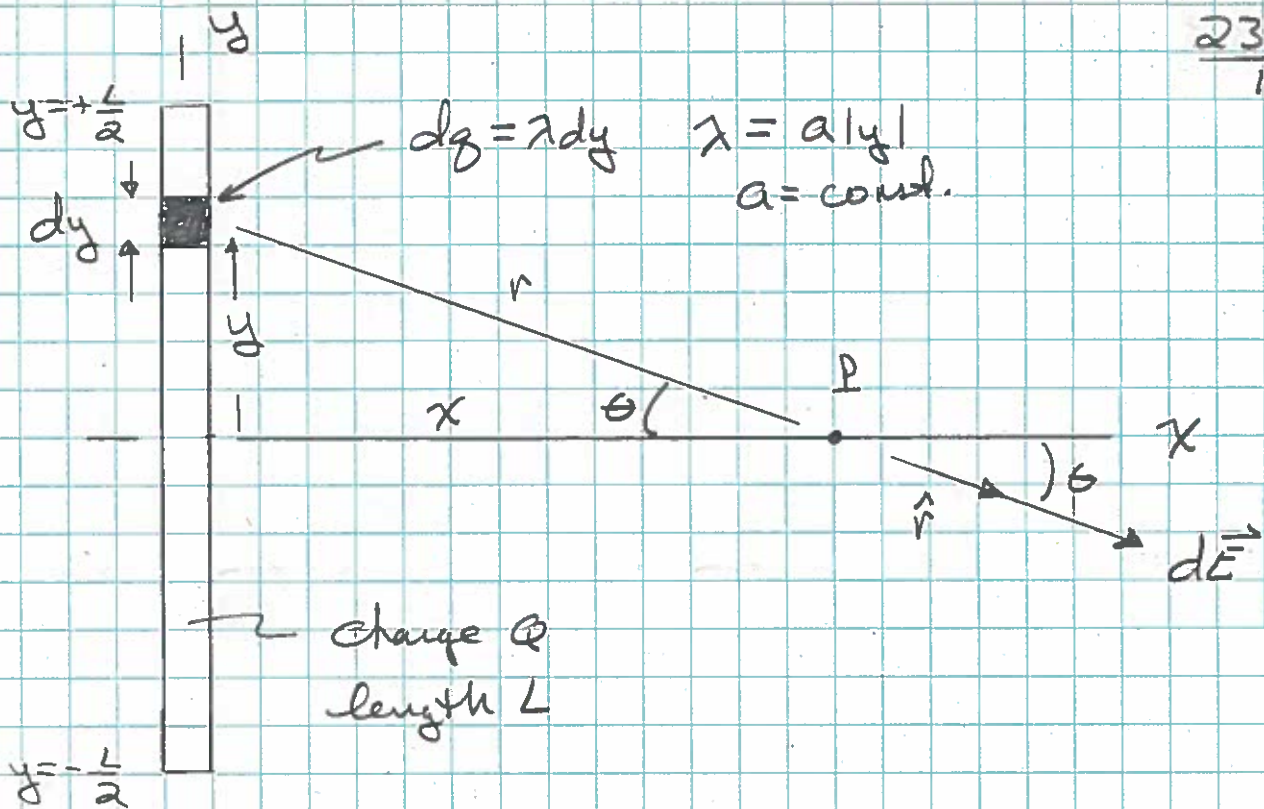 y
23
1
y=+L/2
dq = λdy λ = a|y|
a = const.
dy
r
y
P
x θ x
θ
r̂
dE⃗
charge Q
length L
y=-L/2